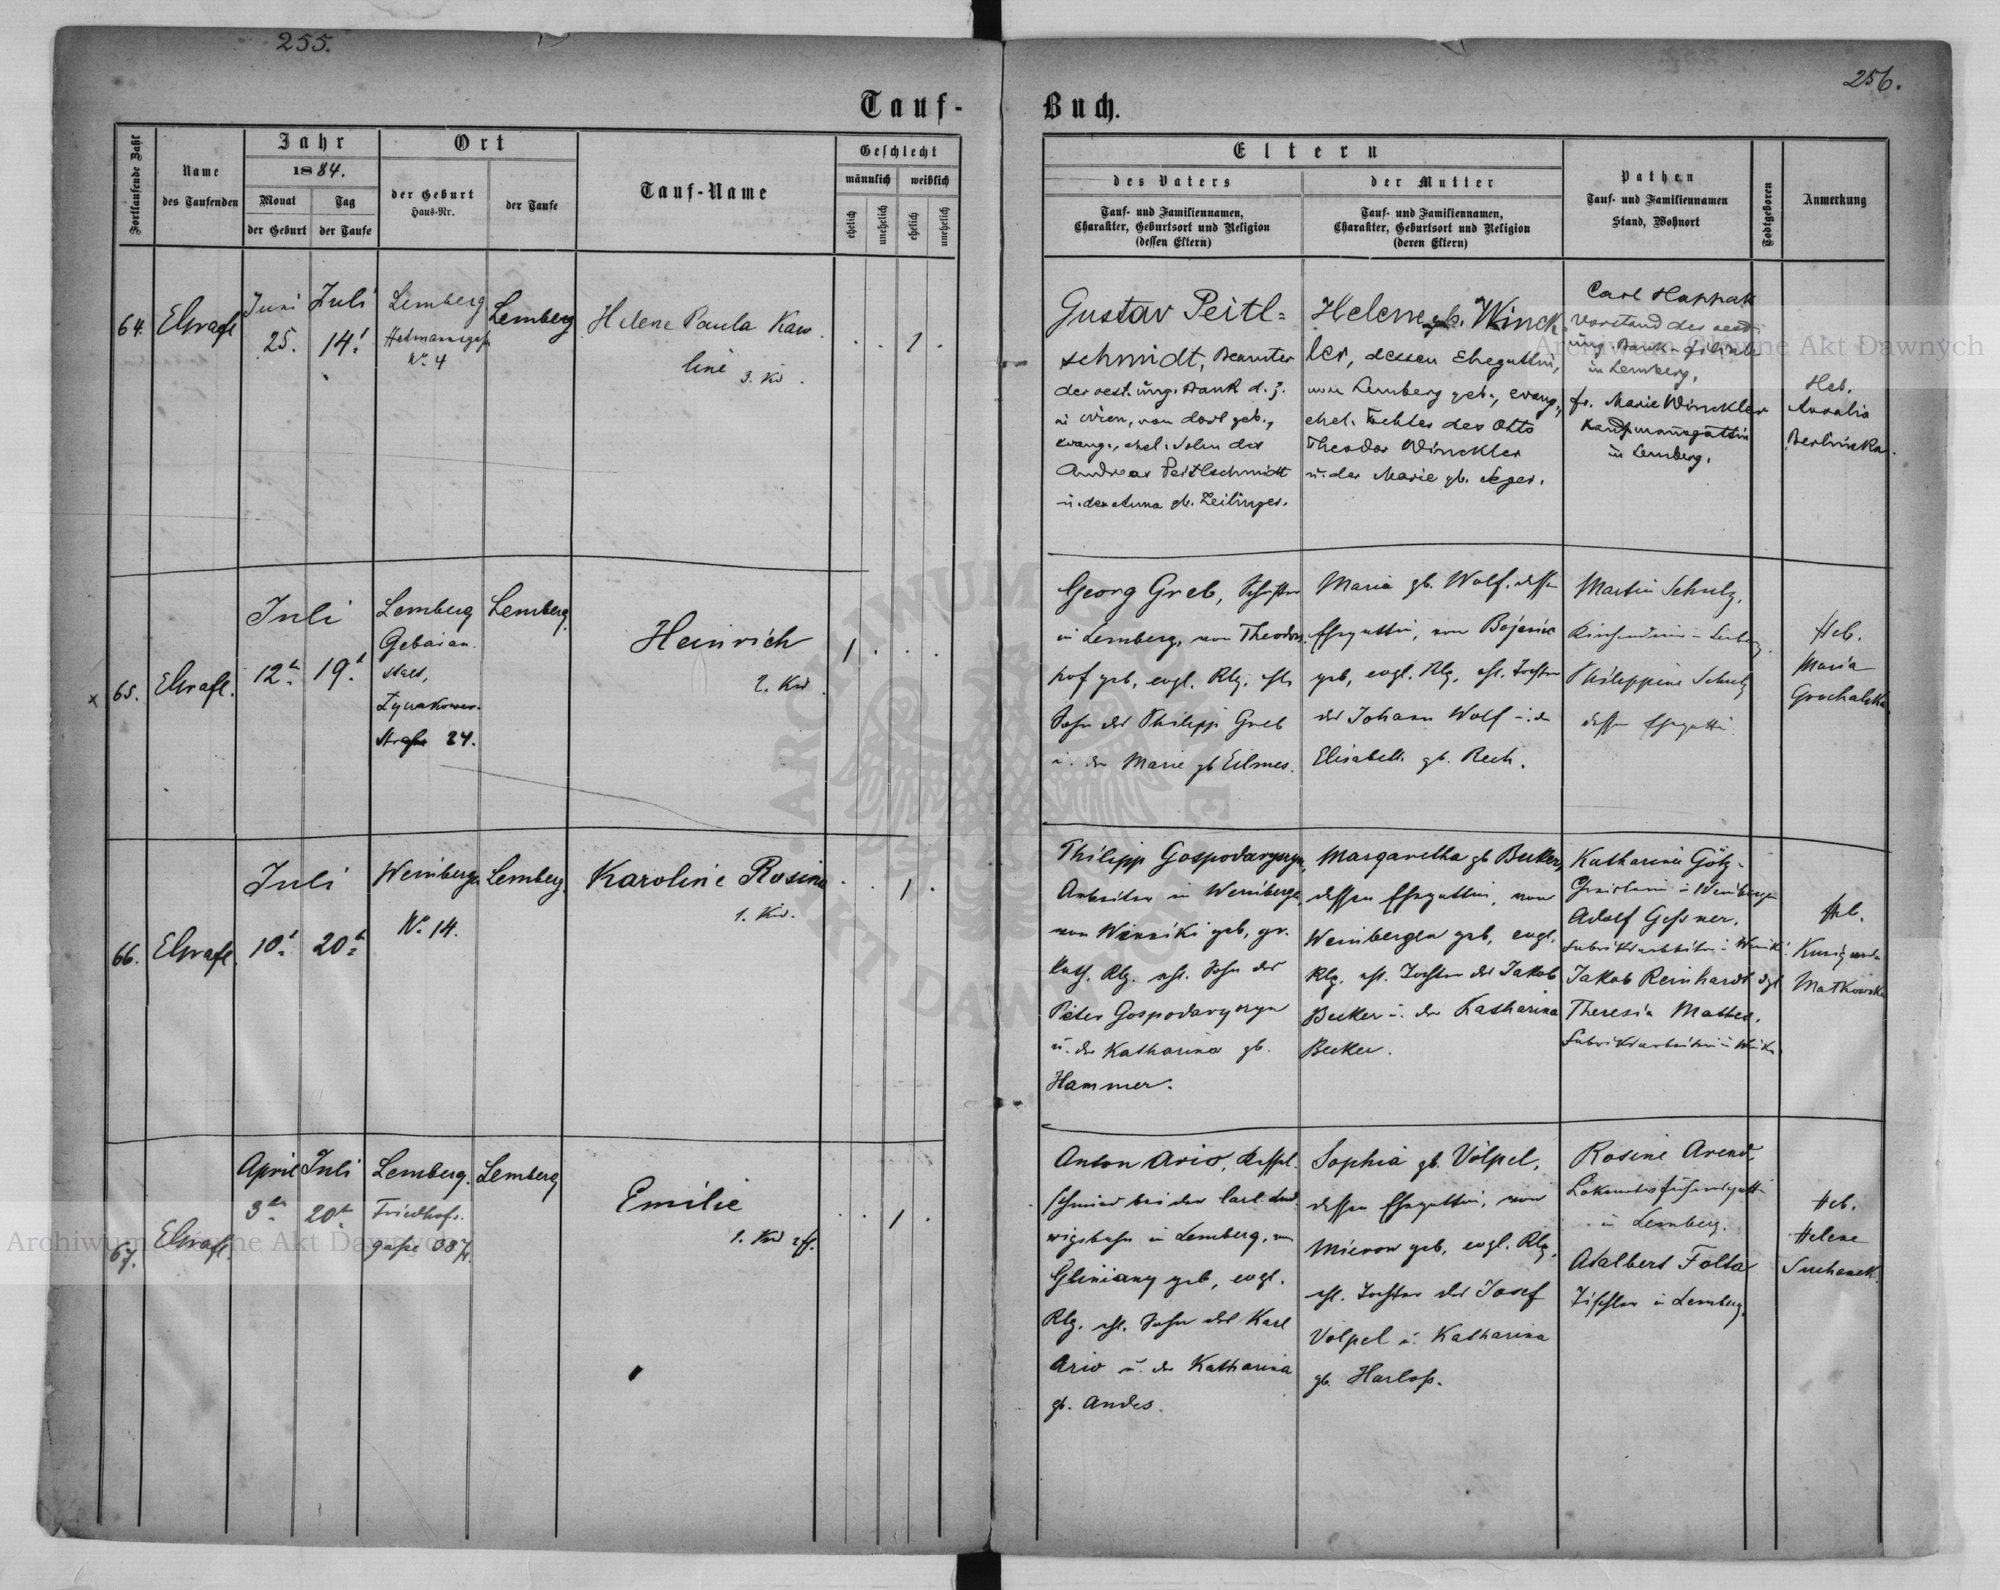 255.
256.
Tauf-
Buch.
Fortlaufende Zahl
Name
des Taufenden
Jahr
1884.
Monat
Tag
der Geburt
der Taufe
Ort
der Geburt
Haus-Nr.
der Taufe
Tauf-Name
Geschlecht
männlich
weiblich
ehelich
unehelich
ehelich
unehelich
Eltern
des Vaters
Tauf- und Familiennamen,
Charakter, Geburtsort und Religion
(dessen Eltern)
der Mutter
Tauf- und Familiennamen,
Charakter, Geburtsort und Religion
(deren Eltern)
Pathen
Tauf- und Familiennamen
Stand, Wohnort
Todtgeboren
Anmerkung
64.
Juni
25.
Juli
14.
Lemberg
Nr. 4
Lemberg
Helene Paula Karo
line
3. Kd.
1
Gustav Peitl=
schmidt, Beamter
der oest. ung. Bank d. z.
in Wien, von dort geb.,
evang., ehel. Sohn des
Andreas Peitlschmidt
u. der Anna gb. Zeilinger.
Helene gb. Winck-
ler, dessen Ehegattin,
von Lemberg geb., evang.,
ehel. Tochter des Otto
Theodor Winckler
u. der Marie gb. Jeger.
Carl
Vorstand der oest.
ung. Bank-Filiale
in Lemberg,
fr. Marie Winckler
Kaufmannsgattin
in Lemberg.
Heb.
Berlinska.
x 65.
Juli
12t.
19t.
Lemberg
Straße 24.
Lemberg.
Heinrich
2. Kd.
1
Georg Greb,
in Lemberg, von Theodors-
hof geb, evgl. Rlg. ehl.
Sohn des Philipp Greb
u. der Marie gb Eilmes.
Maria gb. Wolf, dessen
Ehegattin, von
geb, evgl. Rlg, ehl. Tochter
des Johann Wolf u. der
Elisabeth gb. Rech.
Martin Schulz,
Philippine Schulz
dessen Ehegattin
Heb.
Maria
Grochalska
66.
Juli
10t.
20t.
Weinbergen
Nr. 14.
Lemberg.
Karoline Rosina
1. Kd.
1
Philipp Gospodaryszyn,
Arbeiter in Weinbergen,
von Winniki geb, gr.
kath. Rlg. ehl. Sohn des
Peter Gospodaryszyn
u. der Katharina gb.
Hammer.
Margaretha gb Becker,
dessen Ehegattin, von
Weinbergen geb, evgl.
Rlg. ehl. Tochter des Jakob
Becker u. der Katharina
Becker.
Katharina Götz
Adolf Gessner,
Jakob Reinhardt dgl
Theresia
Heb.
Matkowska
67.
April
3ten
Juli
20t.
Lemberg.
Friedhof-
gasse
Lemberg
Emilie
1. Kd
1
Anton Ario, Kessel-
schmied bei der Carl Lud-
wigsbahn in Lemberg, von
Gliniany geb, evgl.
Rlg. ehl. Sohn des Karl
Ario u. der Katharina
gb. Andes.
Sophia gb. Völpel,
dessen Ehegattin, von
Mierow geb, evgl. Rlg,
ehl. Tochter des Josef
Völpel u. Katharina
gb. Harloß.
Rosine Arend,
in Lemberg.
Adalbert Folta
Tischler in Lemberg.
Heb.
Helene
Suchanek.
Archiwum Główne Akt Dawnych
Archiwum Główne Akt Dawnych
ARCHIWUM GŁÓWNE
AKT DAWNYCH